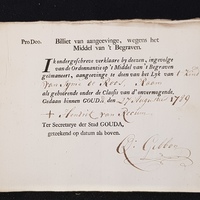 Pro Deo. Billiet van aangeevinge, wegens het
Middel van 't Begraven.
Ik ondergeschreve verklaare by deezen, ingevolge
van de Ordonnantie op 't Middel van 't Begraven
geëmaneert, aangeevinge te doen van het Lyk van 't Kind
van de Roos
als gehoorende onder de Classis van d'onvermogende,
Gedaan binnen GOUDA, den 27 Augustus 1799
Ter Secretarye der Stad GOUDA,
geteekend op datum als boven.